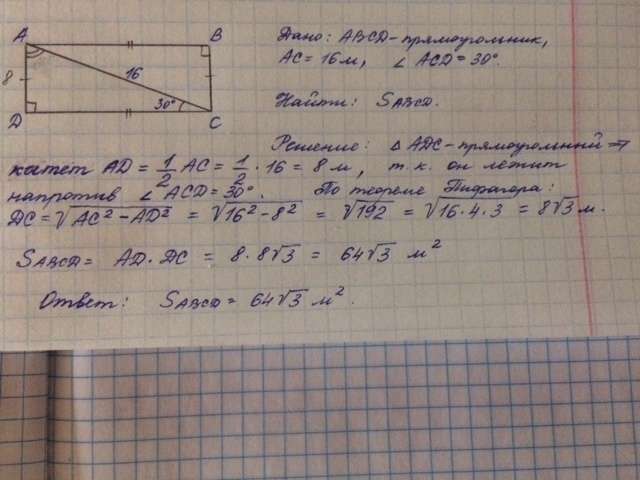 A B
8 16
30°
D C
Дано: ABCD - прямоугольник,
AC = 16 м, ∠ ACD = 30°.
Найти: SABCD.
Решение: △ ADC - прямоугольный ⇒
катет AD = 1/2 AC = 1/2 · 16 = 8 м, т.к. он лежит
напротив ∠ ACD = 30°. По теореме Пифагора:
DC = √AC² - AD² = √16² - 8² = √192 = √16·4·3 = 8√3 м.
SABCD = AD · DC = 8 · 8√3 = 64√3 м²
Ответ: SABCD = 64√3 м².